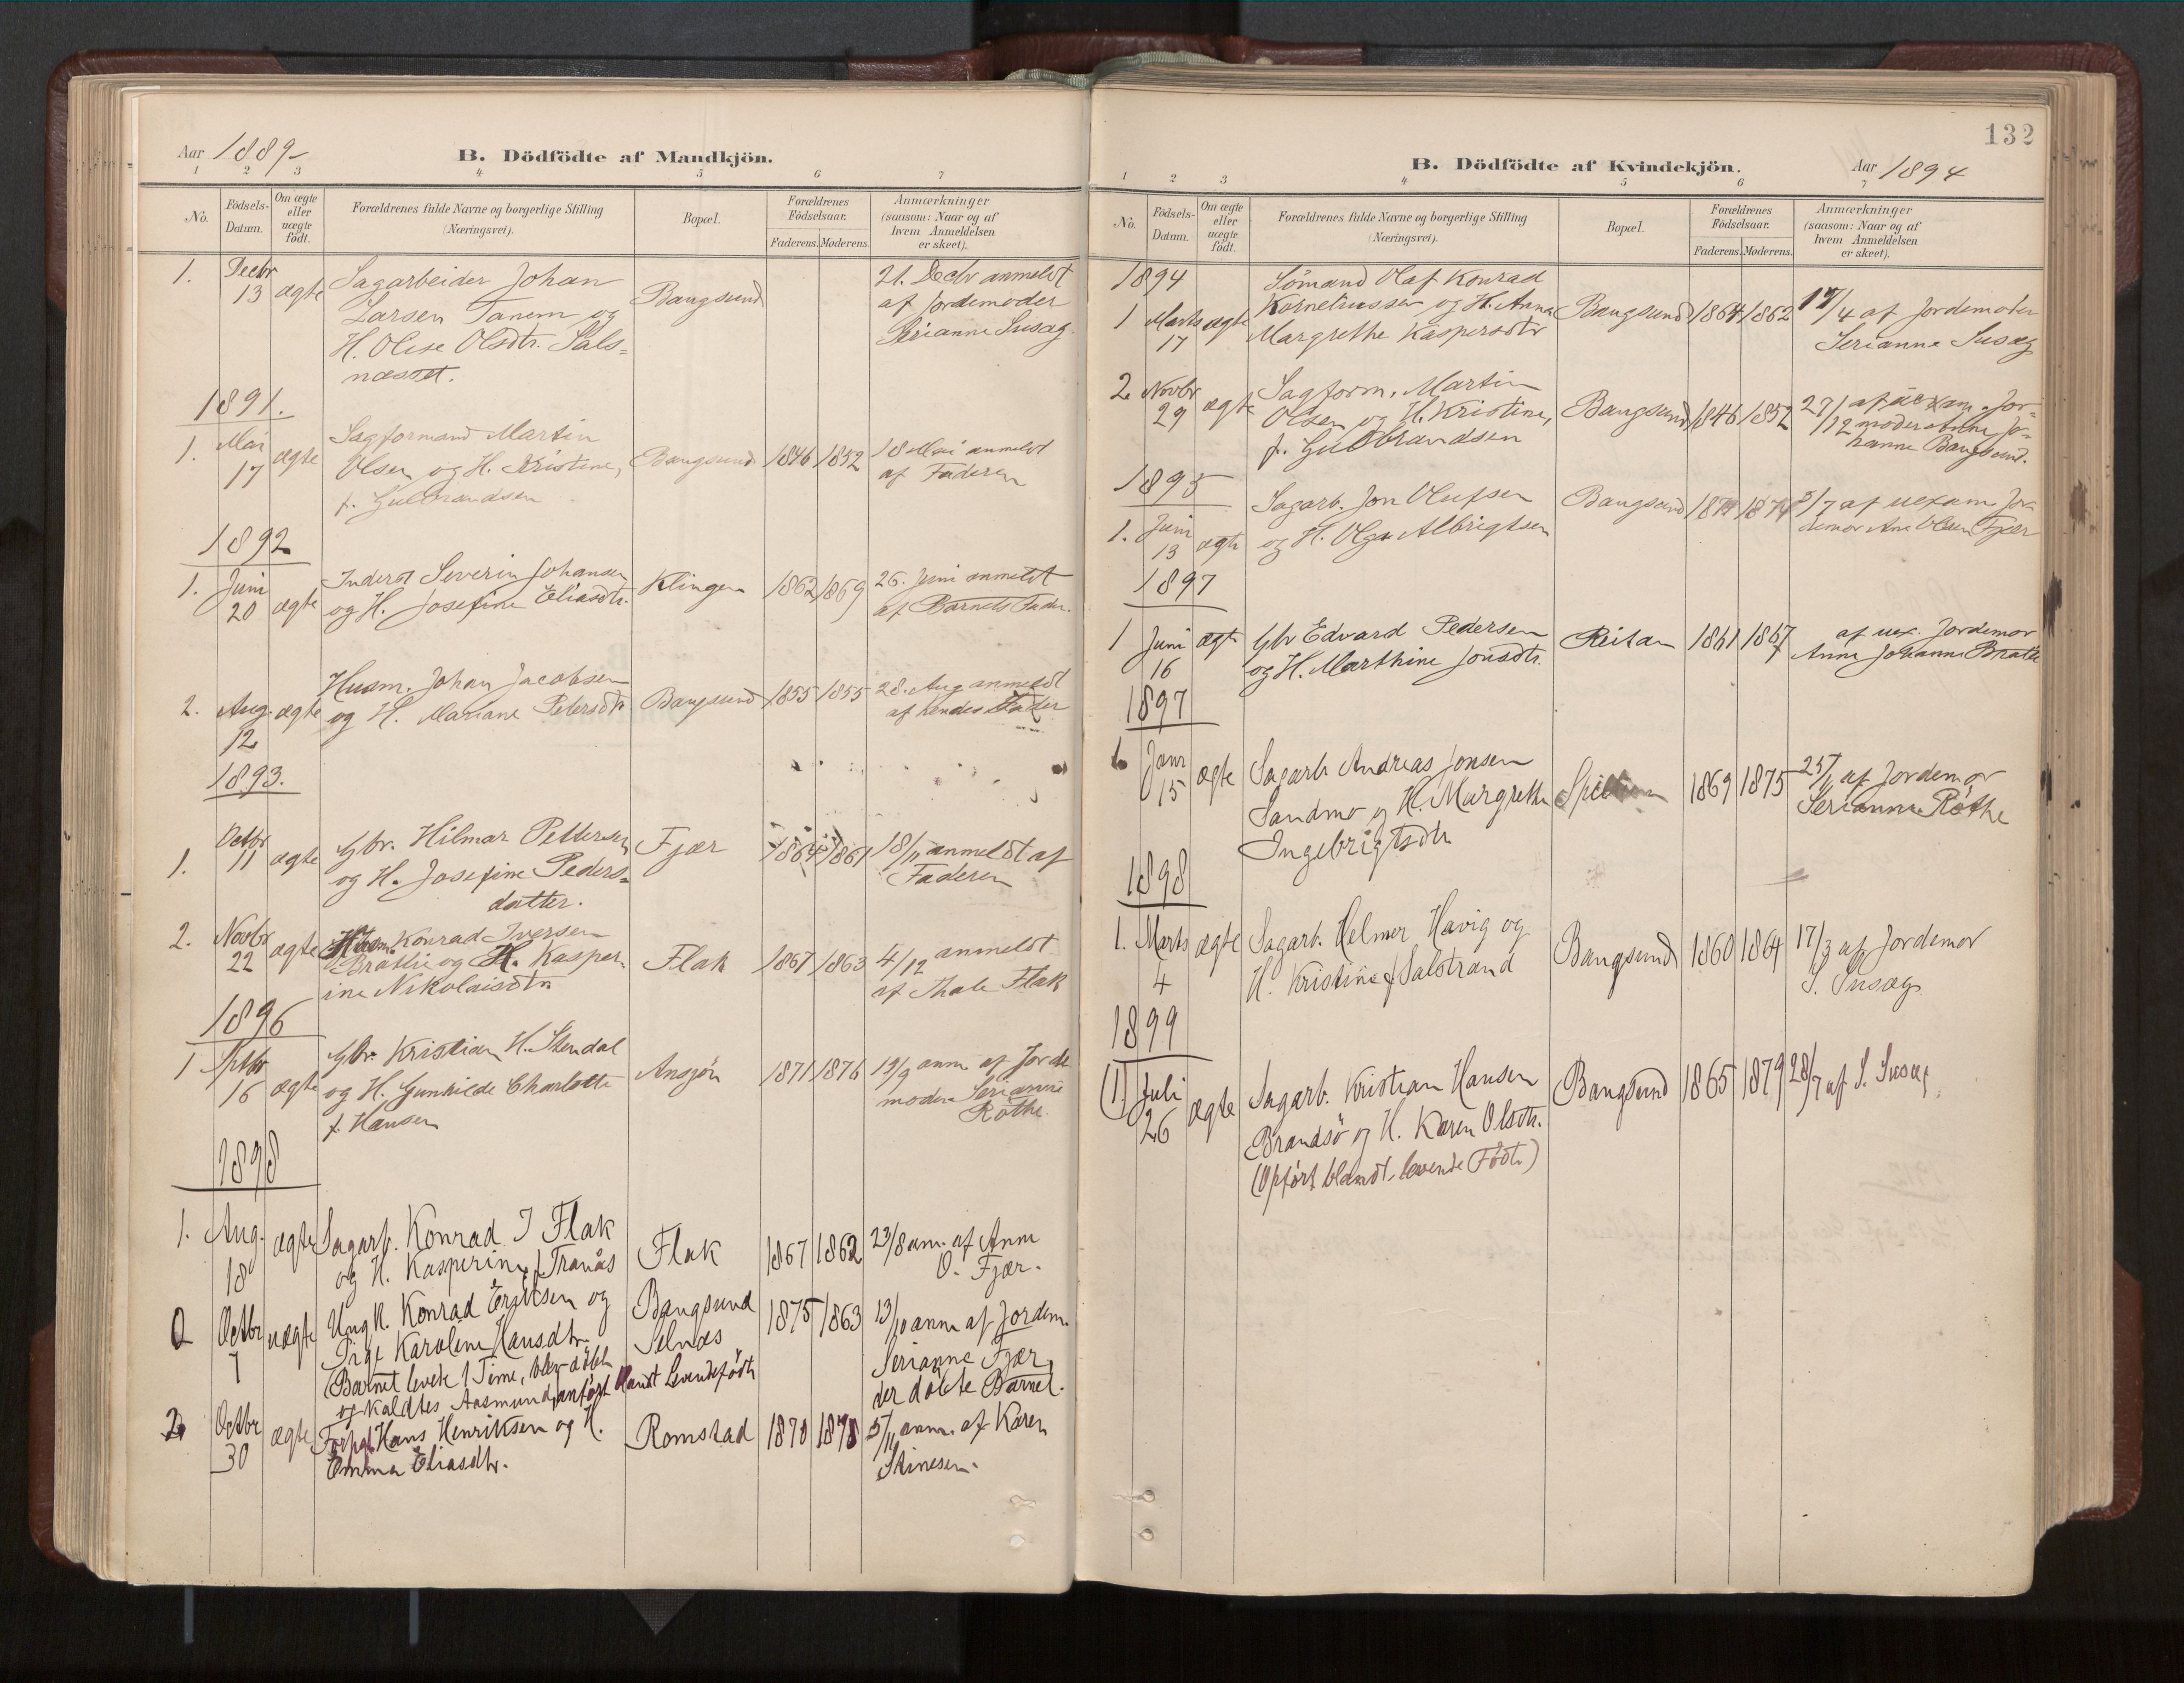 Aar 1889
B. Dödfödte af Mandkjön.
1 2 3 4 5 6 7
No.
Födsels-Datum.
Om ægte eller uægte födt.
Forældrenes fulde Navne og borgerlige Stilling (Næringsvei).
Bopæl.
Forældrenes Födselsaar.
Faderens. Moderens.
Anmærkninger (saasom: Naar og af hvem Anmeldelsen er skeet).
1. Decbr 13 ægte Sagarbeider Johan Bangsund 21. Decbr anmeldt
Larsen Tanem og af Jordemoder
H. Oline Olsdtr. Sals= Serianne Susæg.
næsset.
1891.
1. Mai 17 ægte Sagformand Martin Bangsund 1846 1852 18 Mai anmeldt
Olsen og H. Kristine, af Faderen
f. Gulbrandsen
1892
1. Juni 20 ægte Inderst Severin Johansen Klingen 1862 1869 26. Juni anmeldt
og H. Josefine Eliasdtr. af Barnets Fader.
2. Aug. 12 ægte Husm. Johan Jacobsen Bangsund 1855 1855 28. Aug anmeldt
og H. Mariane Petersdtr af hendes Fader
1893.
1. Octbr 11 ægte Gbr. Hilmar Pettersen Fjær 1864 1861 18/11 anmeldt af
og H. Josefine Peders= Faderen
datter.
2. Novbr 22 ægte Husm. Konrad Iversen Flak 1867 1863 4/12 anmeldt
Bratlie og H. Kasper- af Thale Flak
ine Nikolaisdtr
1896
1 Septbr 16 ægte Gbr. Kristian H. Stendal Ansjön 1871 1876 19/9 anm. af Jorde
og H. Gunhilde Charlotte moder Serianne
f. Hansen Röthe
1898
1. Aug. 18 ægte Sagarb. Konrad I Flak Flak 1867 1862 23/8 anm. af Anne
og H. Kasperine f. Tranås O. Fjær.
Octbr 7 uægte Ung k. Konrad Eriksen og Bangsund 1875 1863 13/10 anm af Jordem.
Pige Karoline Hansdtr. Selnæs Serianne Fjær,
(Barnet levede 1 Time, blev döbt der döbte Barnet.
og kaldtes Aasmund, anfört blandt Levendefödte
2 Octbr 30 ægte Forpgt Hans Henriksen og H. Romstad 1870 1878 5/11 anm. af Karen
Emma Eliasdtr. Stinesen.
132
B. Dödfödte af Kvindekjön.
Aar 1894
1 2 3 4 5 6 7
No.
Födsels-Datum.
Om ægte eller uægte födt.
Forældrenes fulde Navne og borgerlige Stilling (Næringsvei).
Bopæl.
Forældrenes Födselsaar.
Faderens. Moderens.
Anmærkninger (saasom: Naar og af hvem Anmeldelsen er skeet).
1894
1 Marts 17 ægte Sömand Olaf Konrad Bangsund 1864 1862 17/4 af Jordemoder
Korneliussen og H. Anna Serianne Susæg
Margrethe Kaspersdtr
2 Novbr 29 ægte Sagform. Martin Bangsund 1846 1852 27/12 af uexam. Jor-
Olsen og H. Kristine, moder Anne Jo-
f. Gulbrandsen hanne Bangsund.
1895
1. Juni 13 ægte Sagarb. Jon Olufsen Bangsund 1874 5/7 af uexam. Jor-
og H. Olga Albrigtsen demor Ane Olsen Fjær
1897
1 Juni 16 ægte Gbr Edvard Pedersen Reitan 1861 1867 af uex. Jordemor
og H. Marthine Jonsdtr. Anne Johanne Bratli
1897
Janr 15 ægte Sagarb Andreas Jonsen 1869 1875 25/1 af Jordemor
Sandmo og H. Margrethe Serianne Röthe
Ingebrigtsdtr
1898
1. Marts 4 ægte Sagarb. Helmer Havig og Bangsund 1860 1864 17/3 af Jordemor
H. Kristine f. Salstrand S. Susæg
1899
(1.) Juli 26 ægte Sagarb. Kristian Hansen Bangsund 1865 1879 28/7 af S. Susæg
Brandsö og H. Karen Olsdtr.
(Opfört blandt levende Födte)